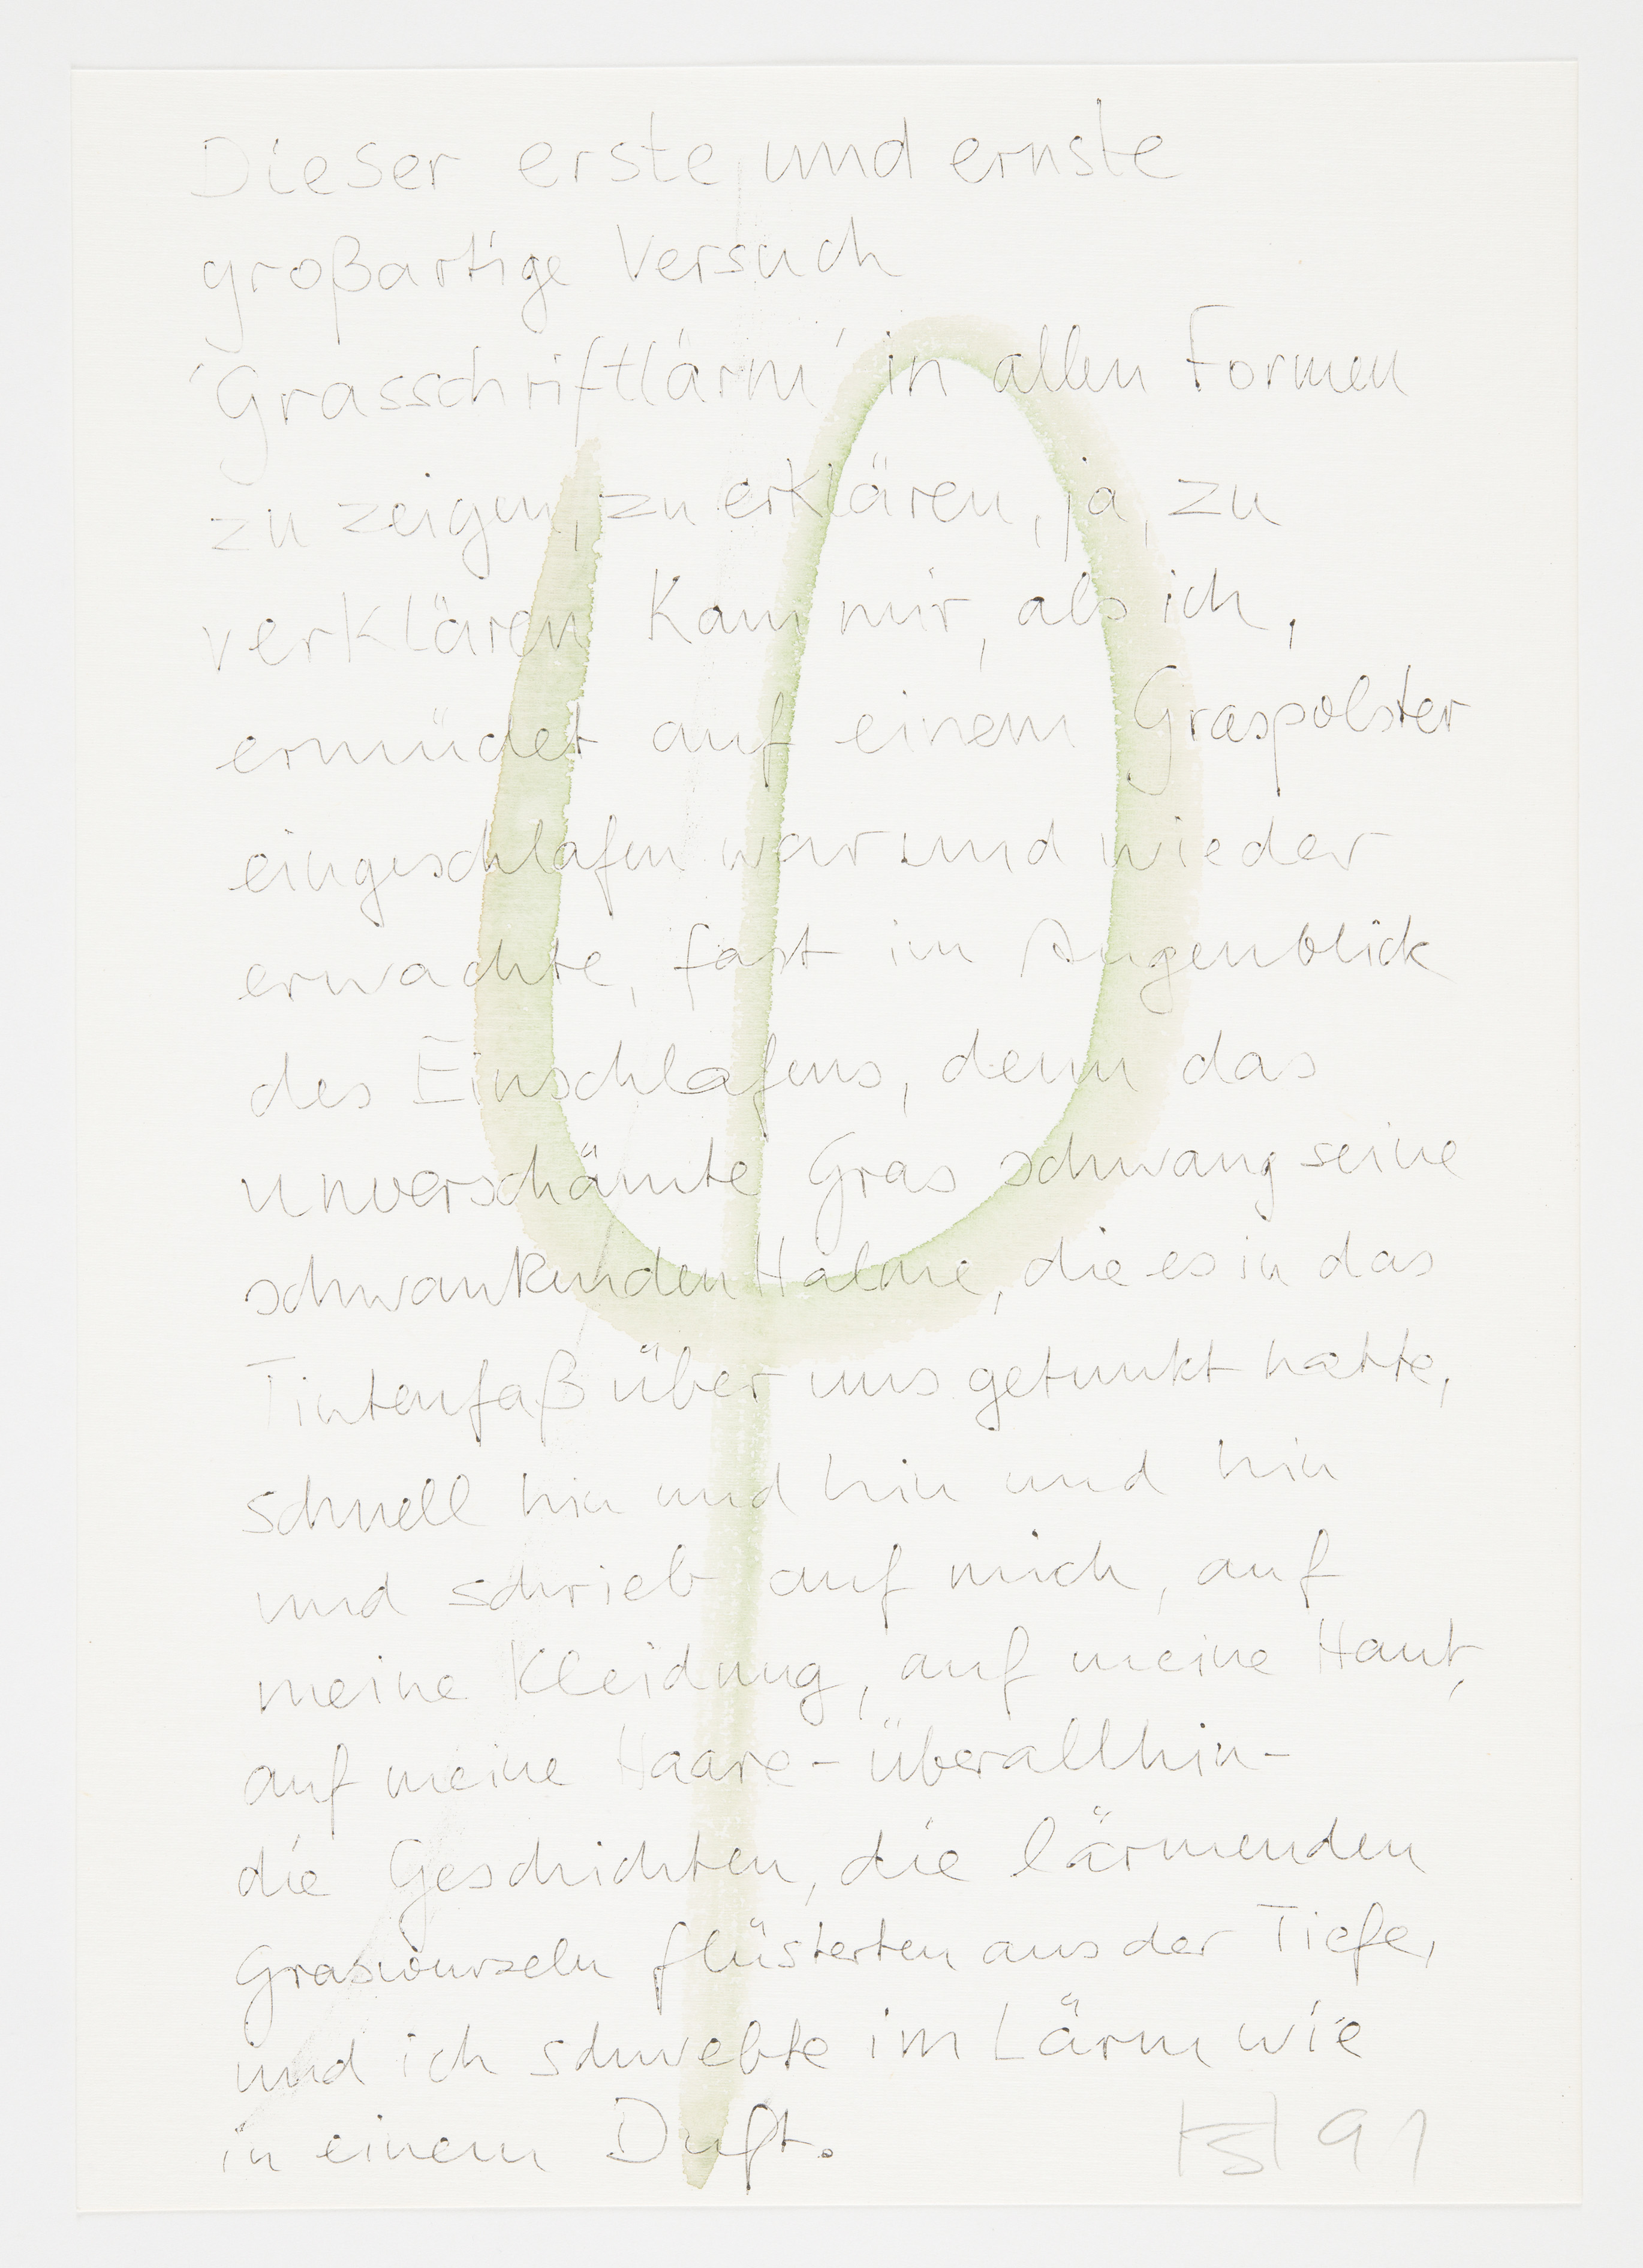 Dieser erste und ernste
großartige Versuch
'Grasschriftlärm' in allen Formen
zu zeigen, zu erklären, ja, zu
verklären kam mir, als ich,
ermüdet auf einem Graspolster
eingeschlafen war und wieder
erwachte, fast im Augenblick
des Einschlafens, denn das
unverschämte Gras schwang seine
schwankenden Halme, die es in das
Tintenfaß über uns getunkt hatte,
schnell hin und hin und hin
und schrieb auf mich, auf
meine Kleidung, auf meine Haut,
auf meine Haare - überallhin -
die Geschichten, die lärmenden
Graswurzeln flüsterten aus der Tiefe,
und ich schwebte im Lärm wie
in einem Duft.
91